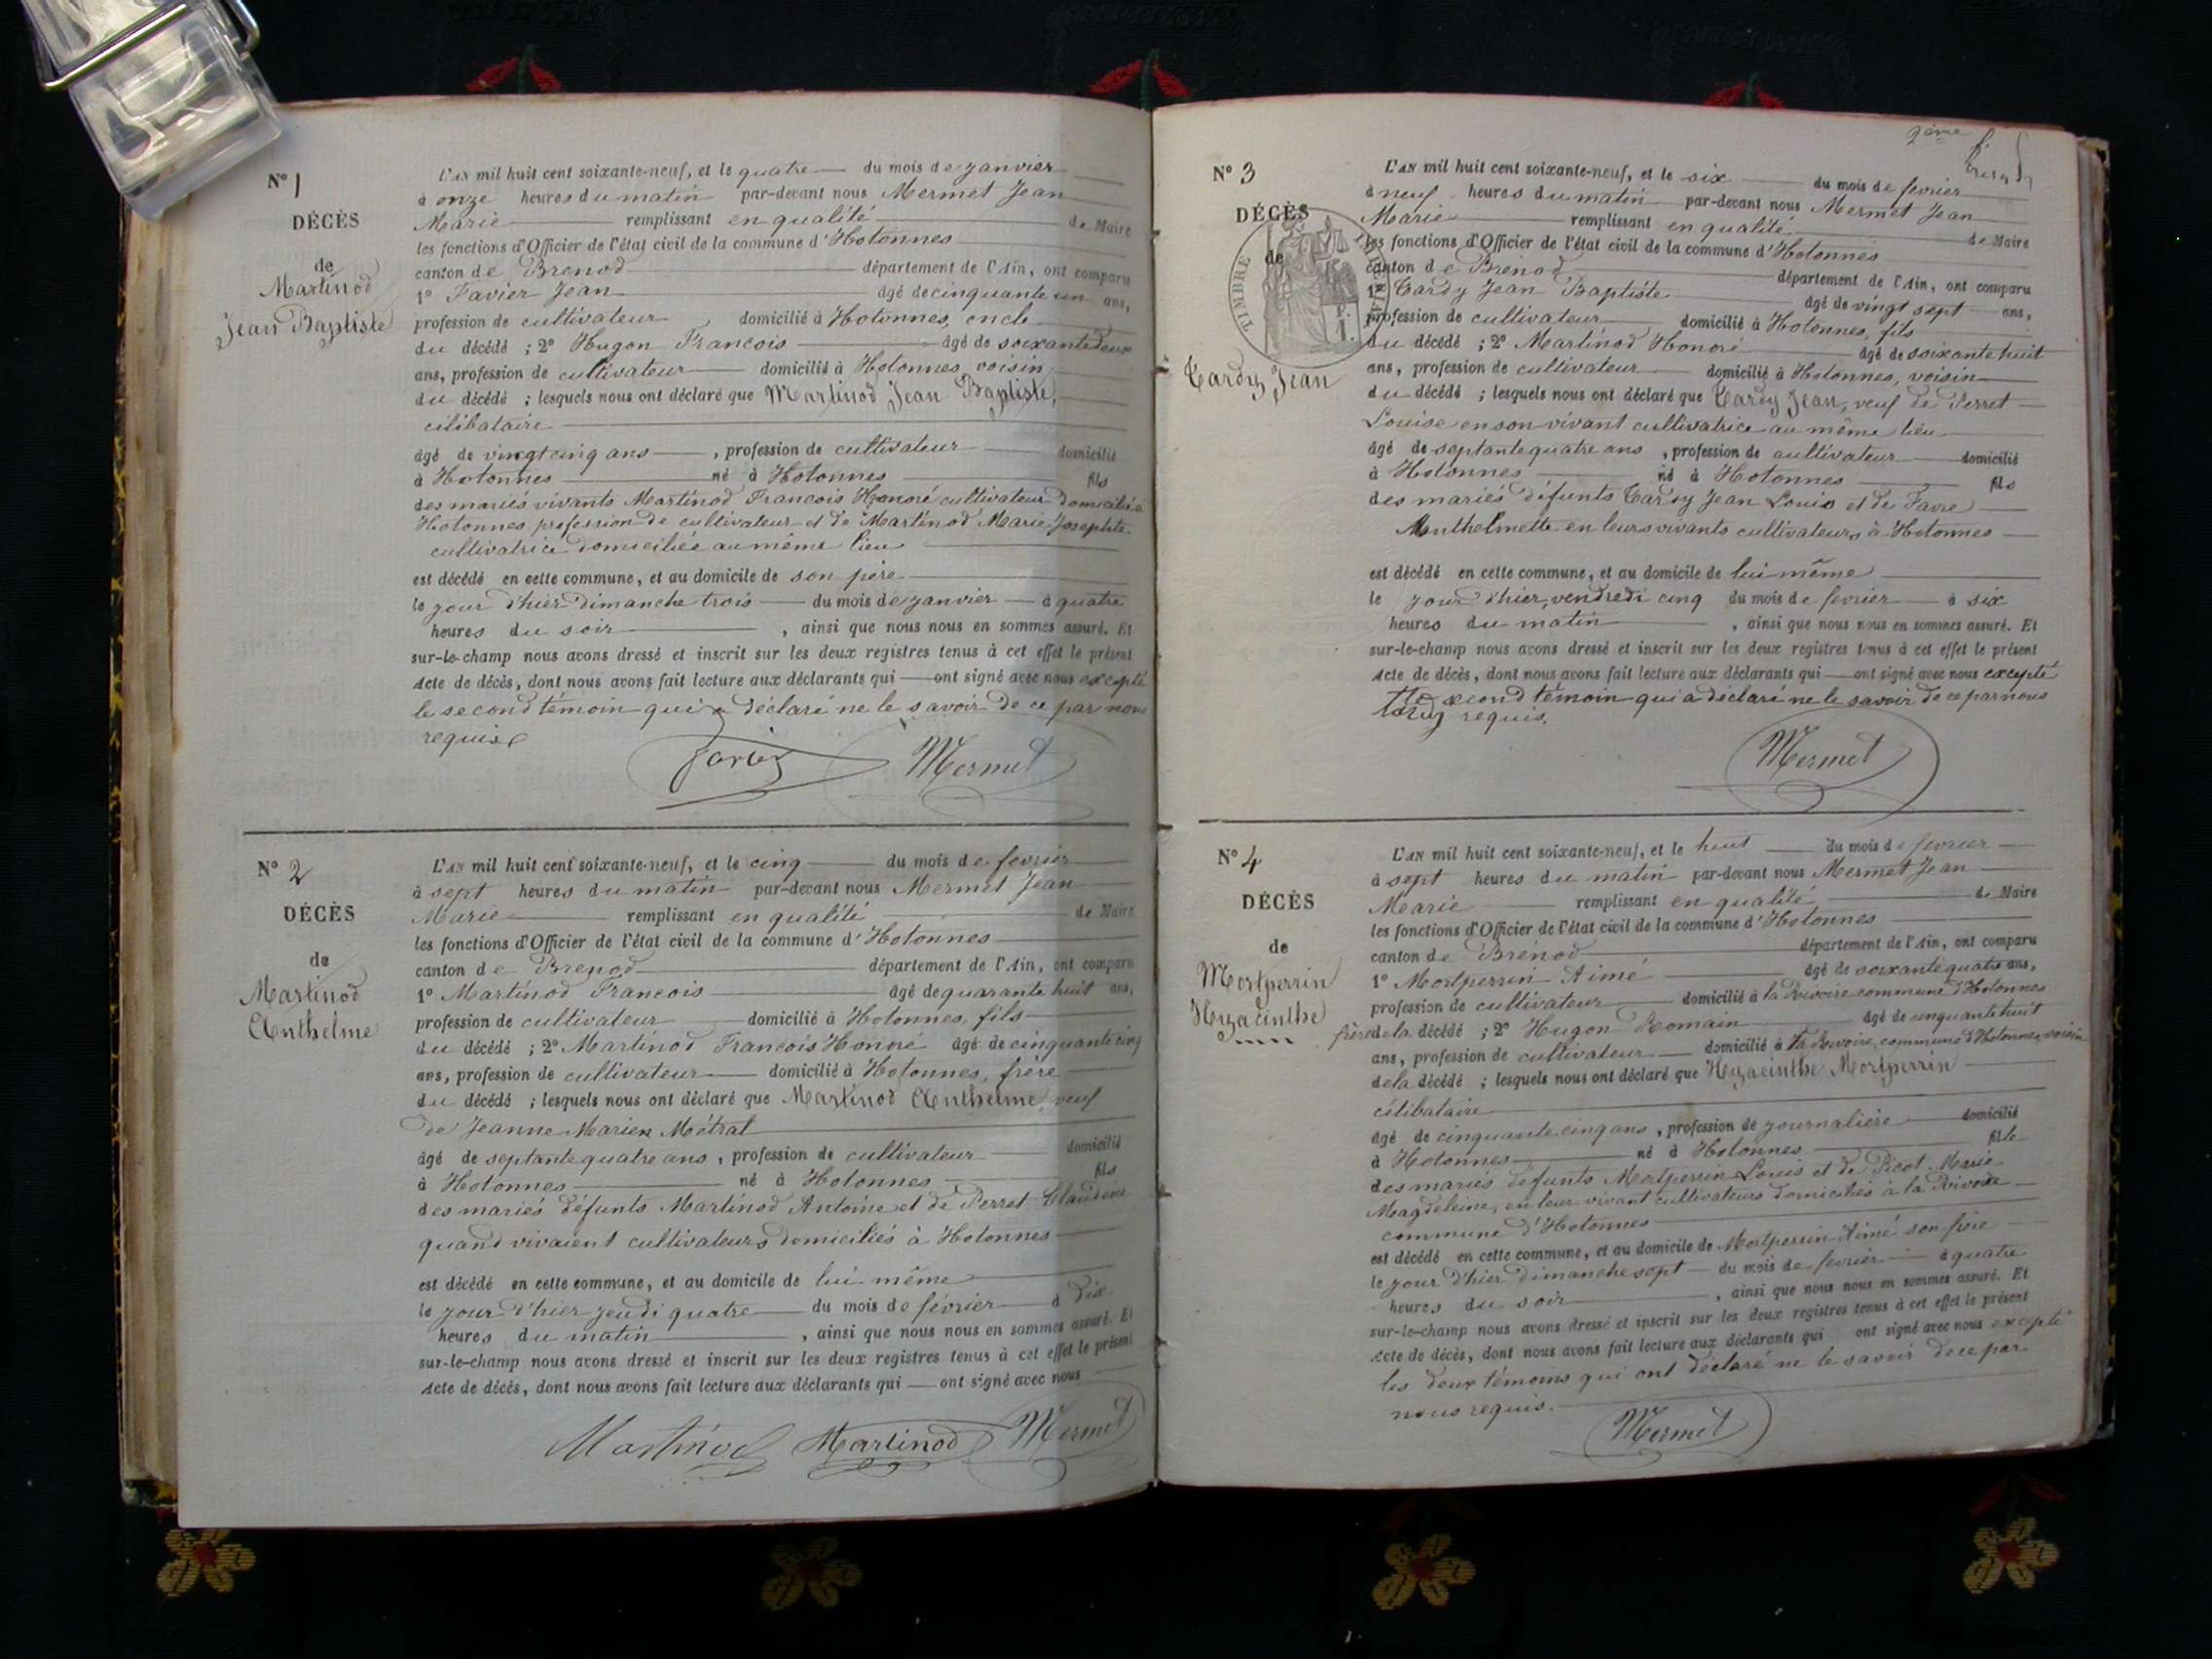 N° 1
DÉCÈS
de
Martinod
Jean Baptiste
L'AN mil huit cent soixante-neuf, et le quatre du mois de janvier
à onze heures du matin par-devant nous Mermet Jean
Marie remplissant en qualité de Maire
les fonctions d'Officier de l'état civil de la commune d'Hotonnes
canton de Brenod département de l'Ain, ont comparu
1° Favier Jean âgé de cinquante un ans,
profession de cultivateur domicilié à Hotonnes, oncle
du décédé ; 2° Hugon Francois âgé de soixante deux
ans, profession de cultivateur domicilié à Hotonnes voisin
du décédé ; lesquels nous ont déclaré que Martinod Jean Baptiste,
célibataire
âgé de vingt cinq ans , profession de cultivateur domicilié
à Hotonnes né à Hotonnes fils
des mariés vivants Martinod Francois Honoré cultivateur domicilié à
Hotonnes profession de cultivateur et de Martinod Marie Josephte
cultivatrice domiciliée au même lieu
est décédé en cette commune, et au domicile de son père
le jour d'hier dimanche trois du mois de janvier à quatre
heures du soir , ainsi que nous nous en sommes assuré. Et
sur-le-champ nous avons dressé et inscrit sur les deux registres tenus à cet effet le présent
Acte de décès, dont nous avons fait lecture aux déclarants qui ont signé avec nous excepté
le second témoin qui a déclaré ne le savoir de ce par nous
requis
Favier Mermet
N° 2
DÉCÈS
de
Martinod
Anthelme
L'AN mil huit cent soixante-neuf, et le cinq du mois de fevrier
à sept heures du matin par-devant nous Mermet Jean
Marie remplissant en qualité de Maire
les fonctions d'Officier de l'état civil de la commune d'Hotonnes
canton de Brenod département de l'Ain, ont comparu
1° Martinod Francois âgé de quarante huit ans,
profession de cultivateur domicilié à Hotonnes, fils
du décédé ; 2° Martinod Francois Honoré âgé de cinquante cinq
ans, profession de cultivateur domicilié à Hotonnes, frère
du décédé ; lesquels nous ont déclaré que Martinod Anthelme, veuf
de Jeanne Marie Métral
âgé de septante quatre ans , profession de cultivateur domicilié
à Hotonnes né à Hotonnes fils
des mariés défunts Martinod Antoine et de Perret Claudine
quand vivaient cultivateurs domiciliés à Hotonnes
est décédé en cette commune, et au domicile de lui même
le jour d'hier jeudi quatre du mois de février à dix
heures du matin , ainsi que nous nous en sommes assuré. Et
sur-le-champ nous avons dressé et inscrit sur les deux registres tenus à cet effet le présent
Acte de décès, dont nous avons fait lecture aux déclarants qui ont signé avec nous
Martinod Martinod Mermet
2ème f.
N° 3
DÉCÈS
de
TIMBRE IMPERIAL
Tardy Jean
L'AN mil huit cent soixante-neuf, et le six du mois de fevrier
à neuf heures du matin par-devant nous Mermet Jean
Marie remplissant en qualité de Maire
les fonctions d'Officier de l'état civil de la commune d'Hotonnes
canton de Brenod département de l'Ain, ont comparu
1° Tardy Jean Baptiste âgé de vingt sept ans,
profession de cultivateur domicilié à Hotonnes, fils
du décédé ; 2° Martinod Honoré âgé de soixante huit
ans, profession de cultivateur domicilié à Hotonnes, voisin
du décédé ; lesquels nous ont déclaré que Tardy Jean, veuf de Perret
Louise en son vivant cultivatrice au même lieu
âgé de septante quatre ans , profession de cultivateur domicilié
à Hotonnes né à Hotonnes fils
des mariés défunts Tardy Jean Louis et de Favre
Anthelmette en leurs vivants cultivateurs à Hotonnes
est décédé en cette commune, et au domicile de lui même
le jour d'hier, vendredi cinq du mois de fevrier à six
heures du matin , ainsi que nous nous en sommes assuré. Et
sur-le-champ nous avons dressé et inscrit sur les deux registres tenus à cet effet le présent
Acte de décès, dont nous avons fait lecture aux déclarants qui ont signé avec nous excepté
le second témoin qui a déclaré ne le savoir de ce par nous
tardy requis.
Mermet
N° 4
DÉCÈS
de
Mortperrin
Hyacinthe
L'AN mil huit cent soixante-neuf, et le huit du mois de fevrier
à sept heures du matin par-devant nous Mermet Jean
Marie remplissant en qualité de Maire
les fonctions d'Officier de l'état civil de la commune d'Hotonnes
canton de Brénod département de l'Ain, ont comparu
1° Mortperrin Aimé âgé de soixante quatre ans,
profession de cultivateur domicilié à la Rivoire commune d'Hotonnes
frère de la décédé ; 2° Hugon Romain âgé de cinquante huit
ans, profession de cultivateur domicilié à la Rivoire, commune d'Hotonnes, voisin
de la décédé ; lesquels nous ont déclaré que Hyacinthe Mortperrin
célibataire
âgé de cinquante cinq ans , profession de journalière domicilié
à Hotonnes né à Hotonnes fille
des mariés défunts Mortperrin Louis et de Picot Marie
Magdeleine, en leur vivant cultivateurs domiciliés à la Rivoire
commune d'Hotonnes
est décédé en cette commune, et au domicile de Mortperrin Aimé son frère
le jour d'hier dimanche sept du mois de fevrier à quatre
heures du soir , ainsi que nous nous en sommes assuré. Et
sur-le-champ nous avons dressé et inscrit sur les deux registres tenus à cet effet le présent
Acte de décès, dont nous avons fait lecture aux déclarants qui ont signé avec nous excepté
les deux témoins qui ont déclaré ne le savoir de ce par
nous requis.
Mermet